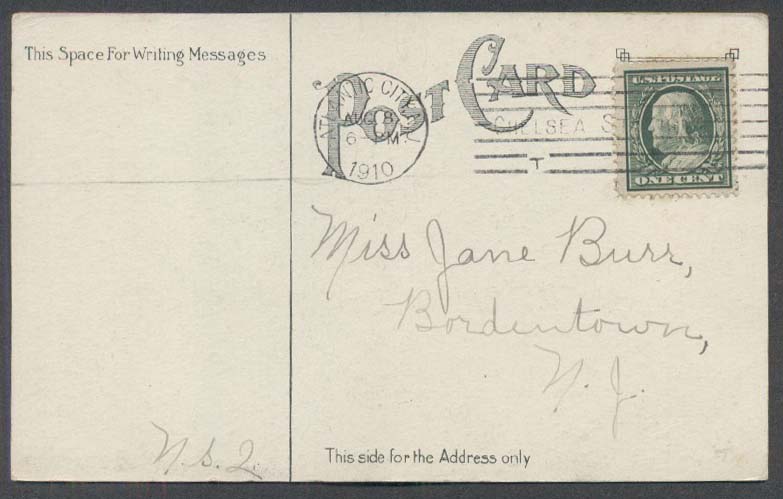 This Space For Writing Messages
POST CARD
U.S. POSTAGE
ONE CENT
ATLANTIC CITY, N.J.
AUG 8
6 PM
1910
CHELSEA
T
Miss Jane Burr,
Bordentown,
N. J.
N. S. 2.
This side for the Address only